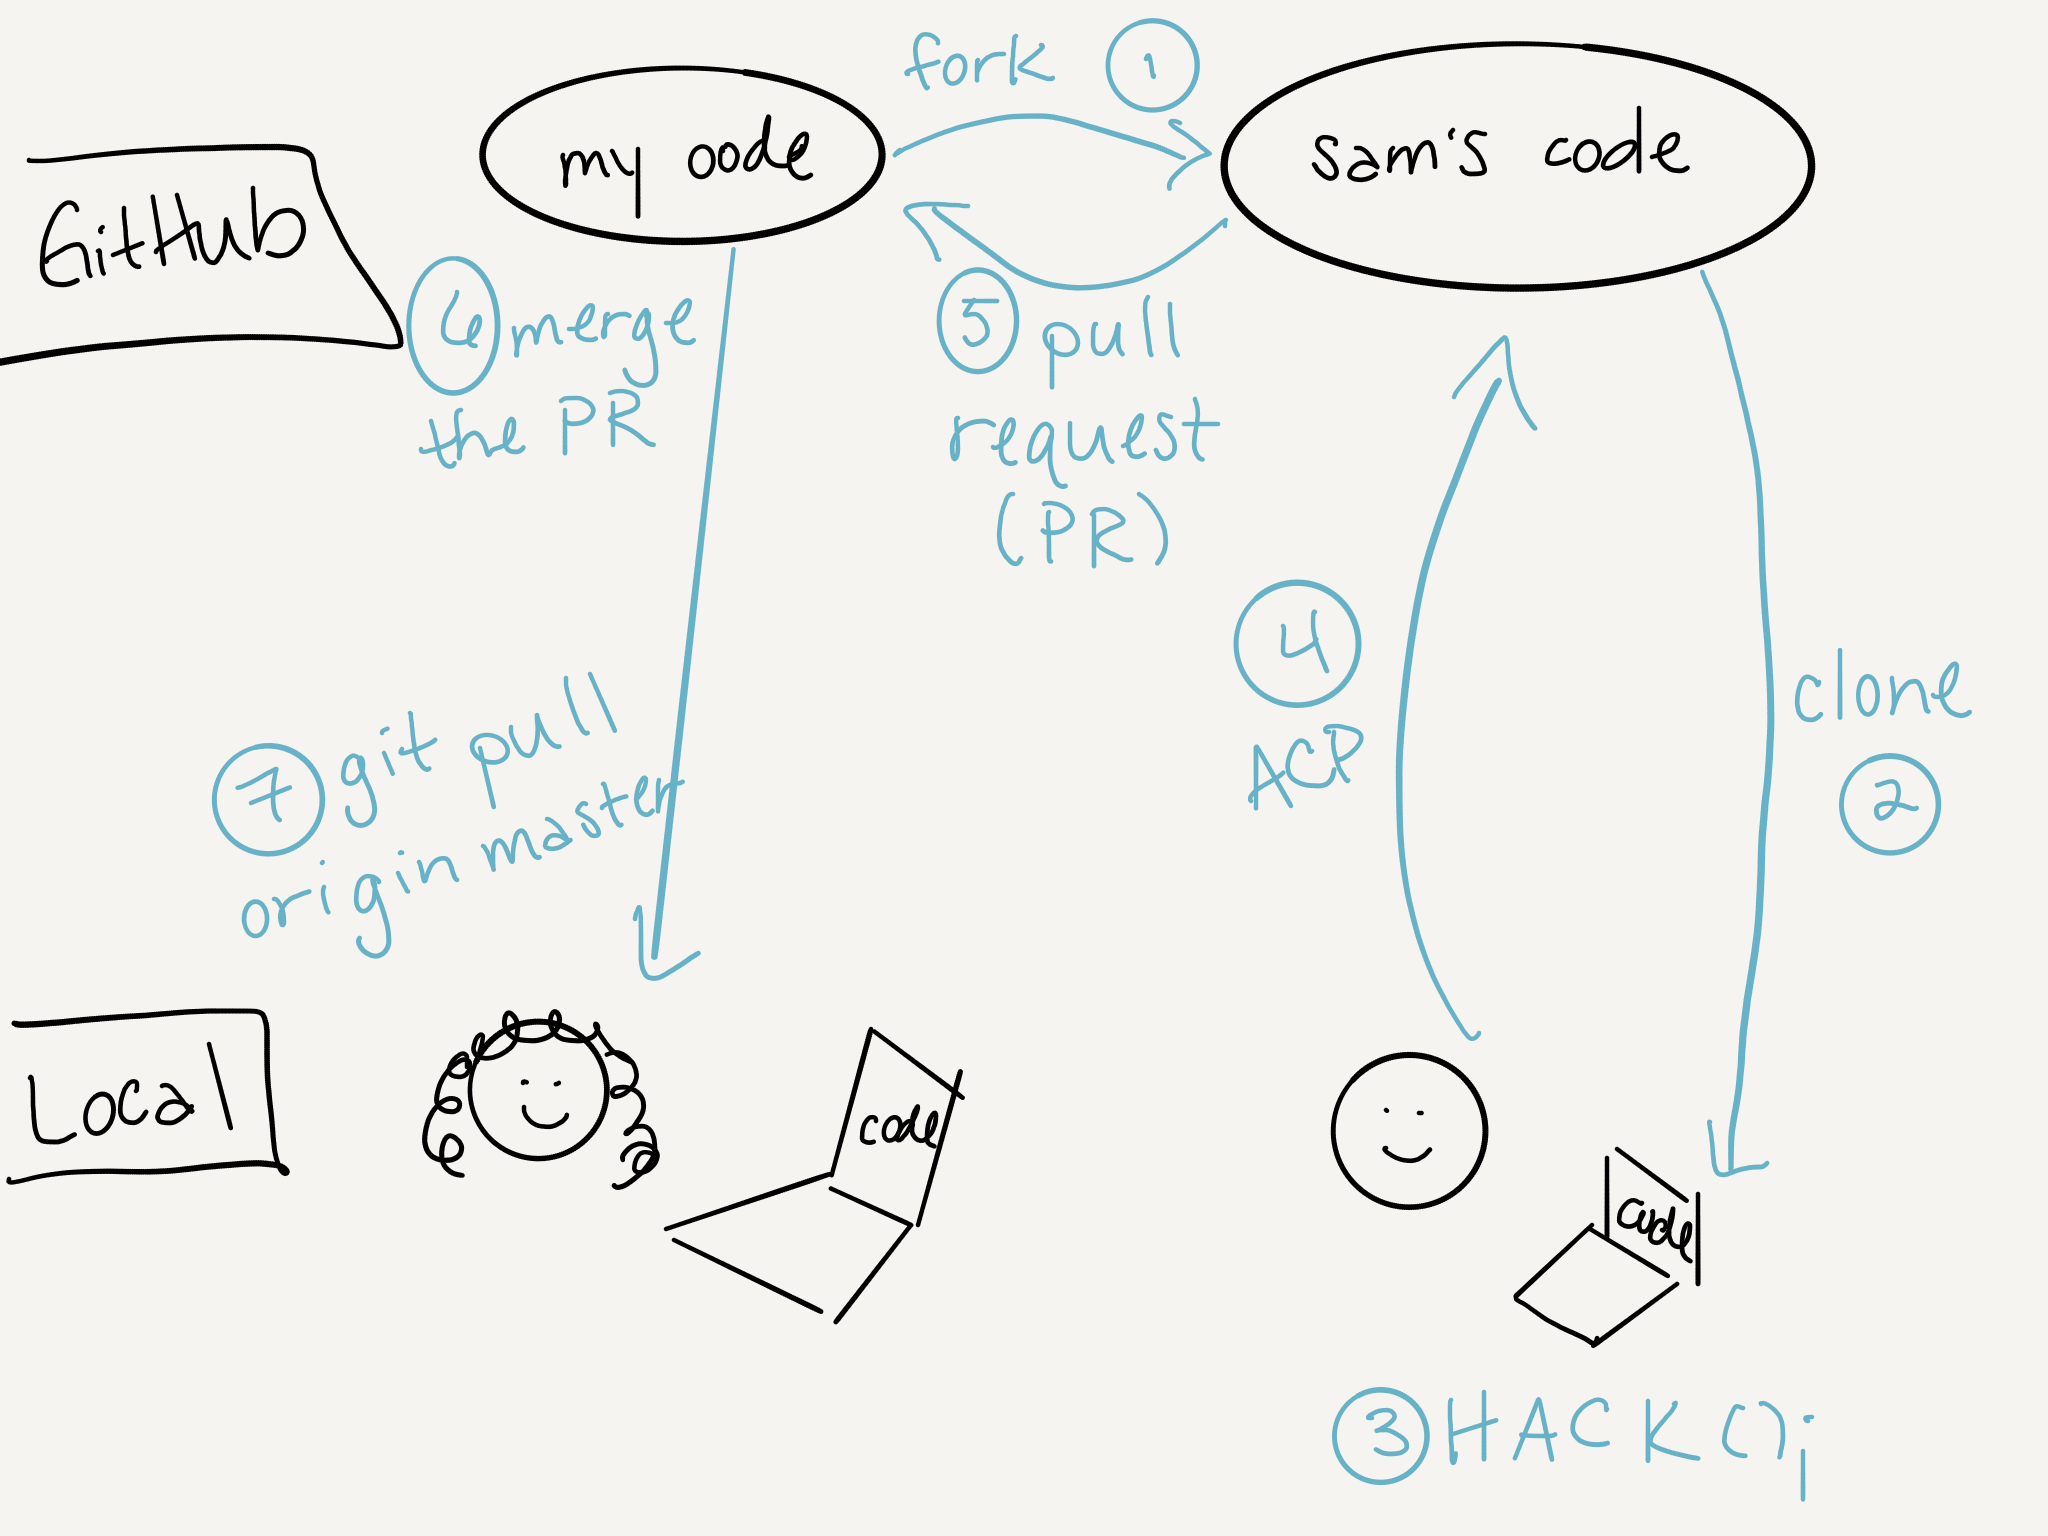 fork 1
my code
sam's code
GitHub
6 merge
the PR
5 pull
request
(PR)
4
ACP
clone
2
7 git pull
origin master
Local
code
code
3 HACK();